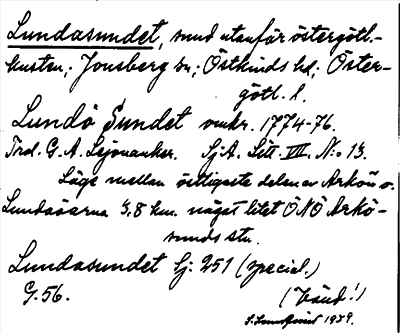 Lundasundet, sund utanför östergötl.-
kusten; Jonsberg sn; Östkinds hd; Öster-
götl. l.
Lundö Sundet omkr. 1774-76.
Trol. G. A. Lejonanker. SjA. Litt. VIII. N:o 13.
Läge mellan östligaste delen av Arkön o.
Lundaöarna 3,8 km. något litet ÖNÖ Arkö-
sunds stn.
Lundasundet Sj: 251 (special.)
G. 56. (känd!)
S. Lundquist 1939.